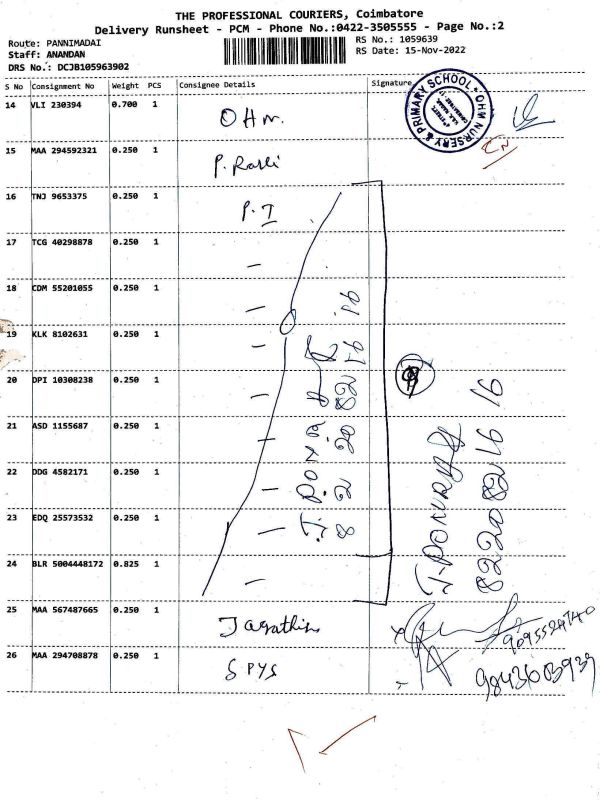 THE PROFESSIONAL COURIERS, Coimbatore
Delivery Runsheet - PCM - Phone No.:0422-3505555 - Page No.:2
Route: PANNIMADAI
RS No.: 1059639
Staff: ANANDAN
RS Date: 15-Nov-2022
DRS No.: DCJB105963902
S No Consignment No Weight PCS Consignee Details Signature
14 VLI 230394 0.700 1 OHM.
OHM NURSERY & PRIMARY SCHOOL
15 MAA 294592321 0.250 1
16 TNJ 9653375 0.250 1 P.I
17 TCG 40298878 0.250 1
18 CDM 55201055 0.250 1
19 KLK 8102631 0.250 1
20 DPI 10308238 0.250 1
21 ASD 1155687 0.250 1
22 DDG 4582171 0.250 1
23 EDQ 25573532 0.250 1
24 BLR 5004448172 0.825 1
8220821616
8220821616
25 MAA 567487665 0.250 1
26 MAA 294708878 0.250 1 SPYS
9843603939